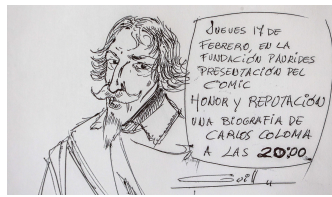 JUEVES 17 DE
FEBRERO, EN LA
FUNDACIÓN PAURIDES
PRESENTACIÓN DEL
COMIC
HONOR Y REPUTACIÓN
UNA BIOGRAFÍA DE
CARLOS COLOMA
A LAS 20:00